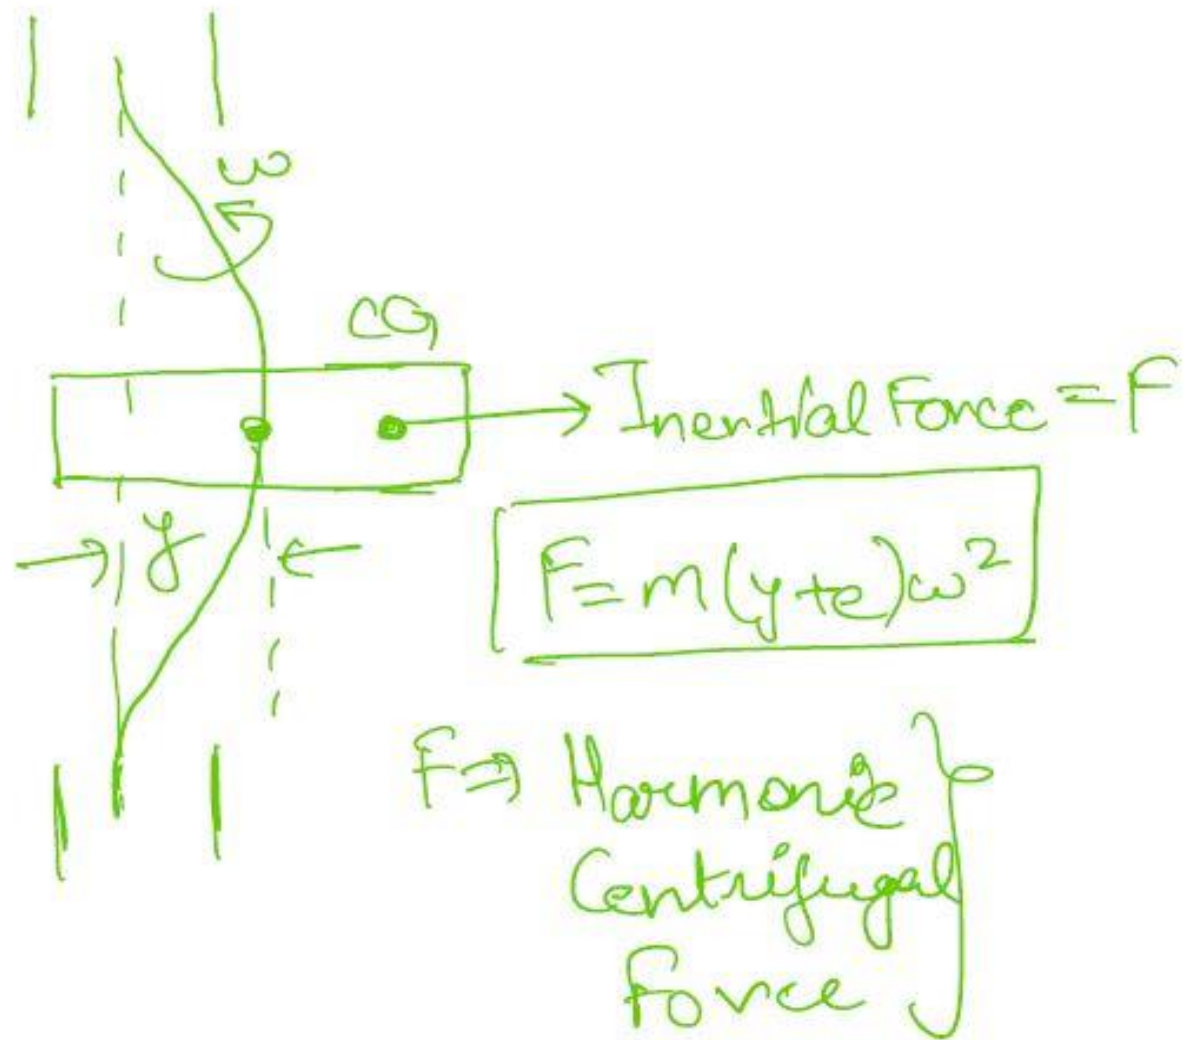 ω
CG
Inertial Force = F
y
F = m(y+e)ω²
F ⇒ Harmonic
Centrifugal
Force